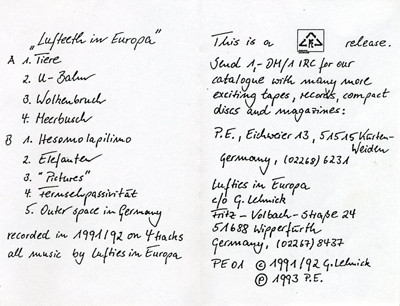 „Lufteeth in Europa"
A 1. Tiere
2. U-Bahn
3. Wolkenbruch
4. Meerbusch
B 1. Hesomolapilimo
2. Elefanten
3. "Pictures"
4. Fernsehpassivität
5. Outer space in Germany
recorded in 1991/92 on 4tracks
all music by Lufties im Europa
This is a release.
Send 1,- DM/1 IRC for our
catalogue with many more
exciting tapes, records, compact
discs and magazines:
P.E., Eichweier 13, 51515 Kürten-
Weiden
Germany, (02268) 6231
Lufties in Europa
c/o G. Lehnick
Fritz - Volbach - Straße 24
51688 Wipperfürth
Germany, (02267) 8437
PE 01 © 1991/92 G. Lehnick
℗ 1993 P.E.